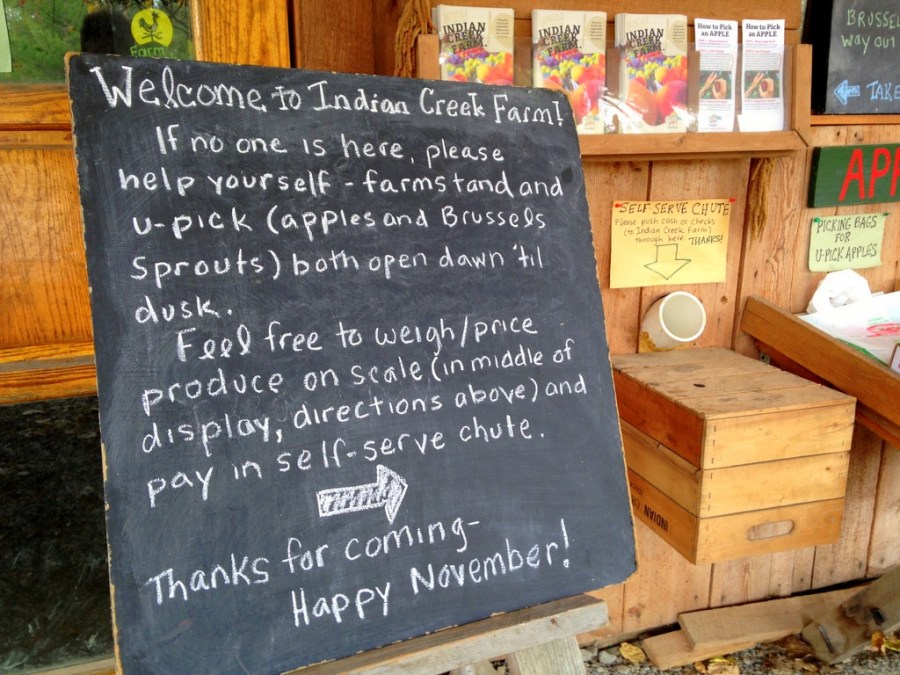 Farm
Welcome to Indian Creek Farm!
If no one is here, please
help yourself - farmstand and
u-pick (apples and Brussels
Sprouts) both open dawn 'til
dusk.
Feel free to weigh/price
produce on scale (in middle of
display, directions above) and
pay in self-serve chute.
Thanks for coming-
Happy November!
INDIAN CREEK FARM
INDIAN CREEK FARM
INDIAN CREEK FARM
How to Pick
an APPLE
How to Pick
an APPLE
BRUSSEL
way out
TAKE
SELF SERVE CHUTE
Please push cash or checks
(to Indian Creek Farm)
through here. THANKS!
APP
PICKING BAGS
FOR
U-PICK APPLES
INDIAN